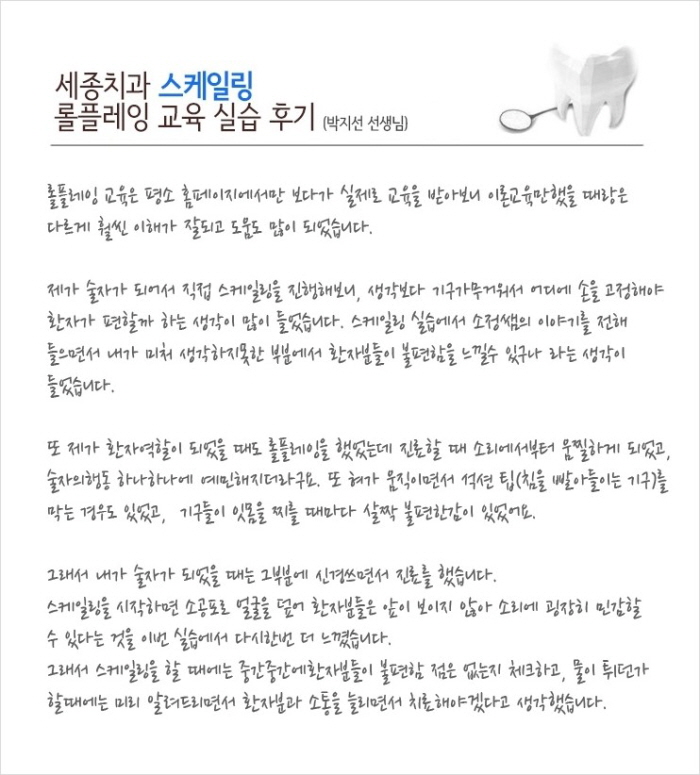 세종치과 스케일링
롤플레잉 교육 실습 후기 (박지선 선생님)
롤플레잉 교육은 평소 홈페이지에서만 보다가 실제로 교육을 받아보니 이론교육만했을 때랑은
다르게 훨씬 이해가 잘되고 도움도 많이 되었습니다.
제가 술자가 되어서 직접 스케일링을 진행해보니, 생각보다 기구가무거워서 어디에 손을 고정해야
환자가 편할까 하는 생각이 많이 들었습니다. 스케일링 실습에서 소정쌤의 이야기를 전해
들으면서 내가 미처 생각하지못한 부분에서 환자분들이 불편함을 느낄수 있구나 라는 생각이
들었습니다.
또 제가 환자역할이 되었을 때도 롤플레잉을 했었는데 진료할 때 소리에서부터 움찔하게 되었고,
술자의행동 하나하나에 예민해지더라구요. 또 혀가 움직이면서 석션 팁(침을 빨아들이는 기구)를
막는 경우도 있었고, 기구들이 잇몸을 찌를 때마다 살짝 불편한감이 있었어요.
그래서 내가 술자가 되었을 때는 그부분에 신경쓰면서 진료를 했습니다.
스케일링을 시작하면 소공포로 얼굴을 덮어 환자분들은 앞이 보이지 않아 소리에 굉장히 민감할
수 있다는 것을 이번 실습에서 다시한번 더 느꼈습니다.
그래서 스케일링을 할 때에는 중간중간에환자분들이 불편함 점은 없는지 체크하고, 물이 튀던가
할때에는 미리 알려드리면서 환자분과 소통을 늘리면서 치료해야겠다고 생각했습니다.